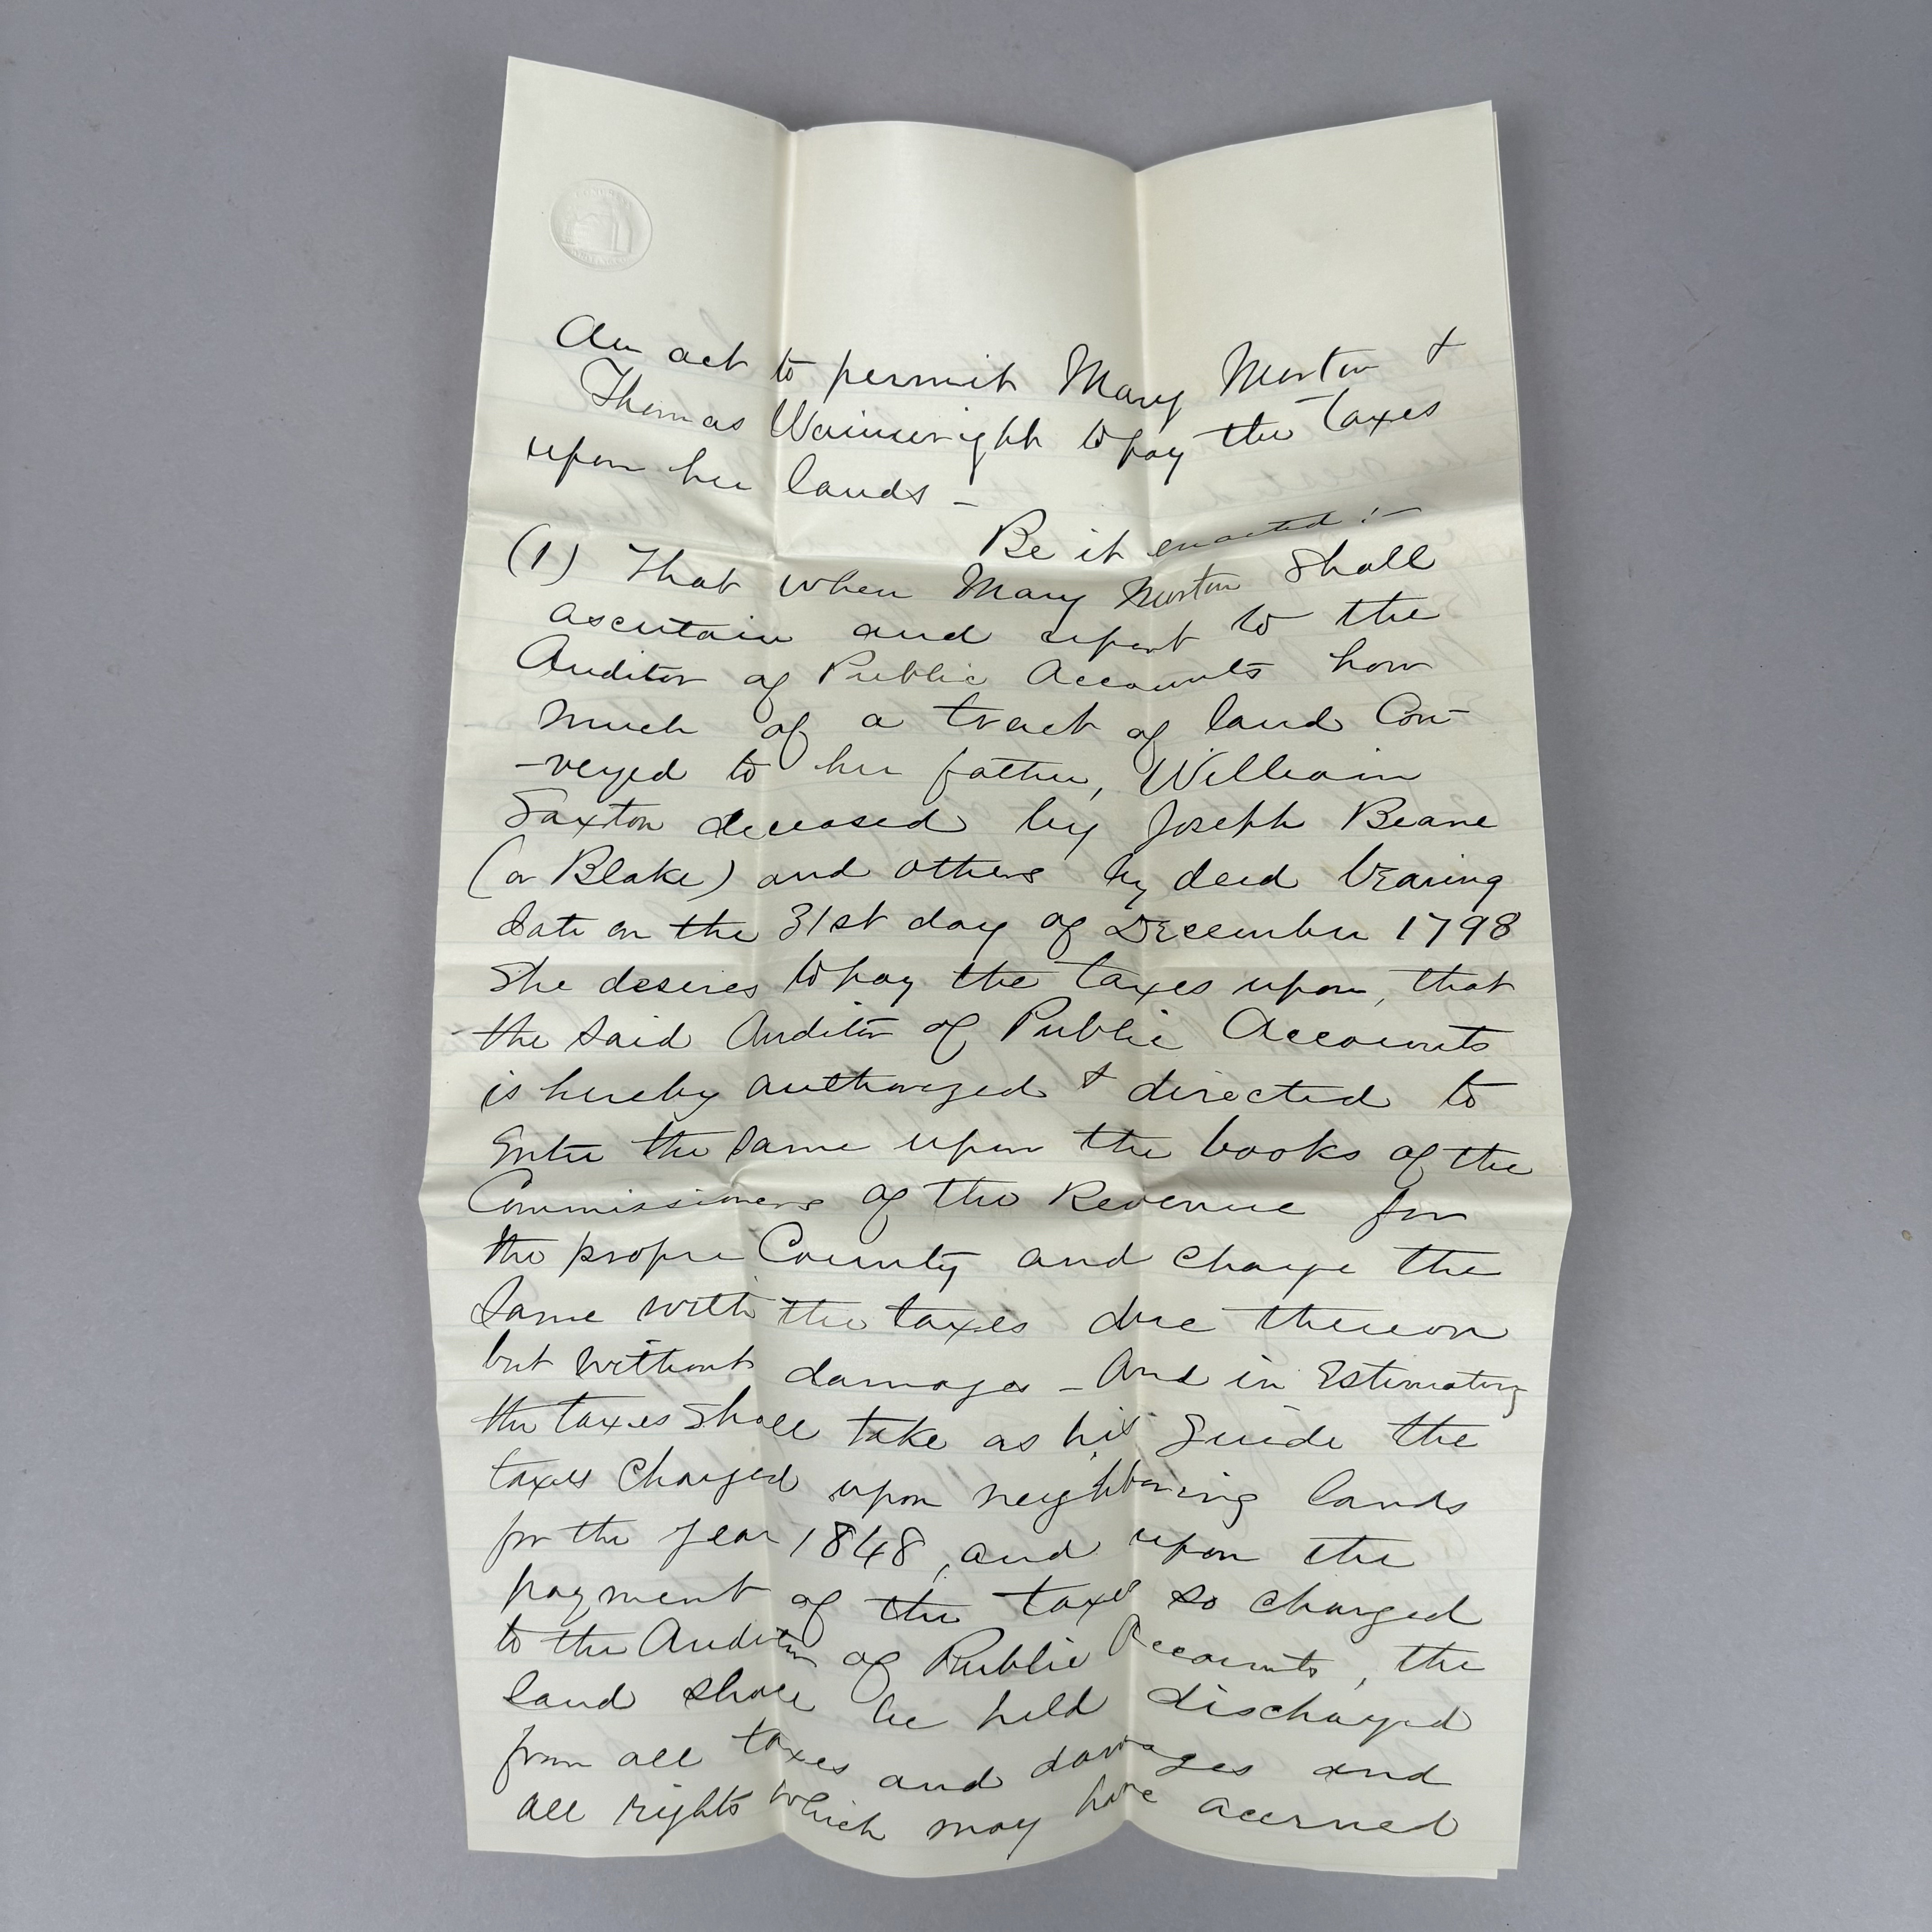 CONGRESS
An act to permit Mary Morton &
Thomas Wainwright to pay the taxes
upon her lands –
Be it enacted :–
(1) That when Mary Morton shall
ascertain and report to the
Auditor of Public Accounts how
much of a tract of land Con-
-veyed to her father, William
Saxton deceased by Joseph Beane
(or Blake) and others by deed bearing
date on the 31st day of December 1798
She desires to pay the taxes upon, that
the said Auditor of Public Accounts
is hereby authorized & directed to
Enter the same upon the books of the
Commissioners of the Revenue for
the proper County and charge the
same with the taxes due thereon
but without damages – And in Estimating
the taxes shall take as his Guide the
taxes charged upon neighboring lands
for the year 1848, and upon the
payment of the taxes so charged
to the Auditor of Public Accounts, the
land shall be held discharged
from all taxes and damages and
all rights which may have accrued